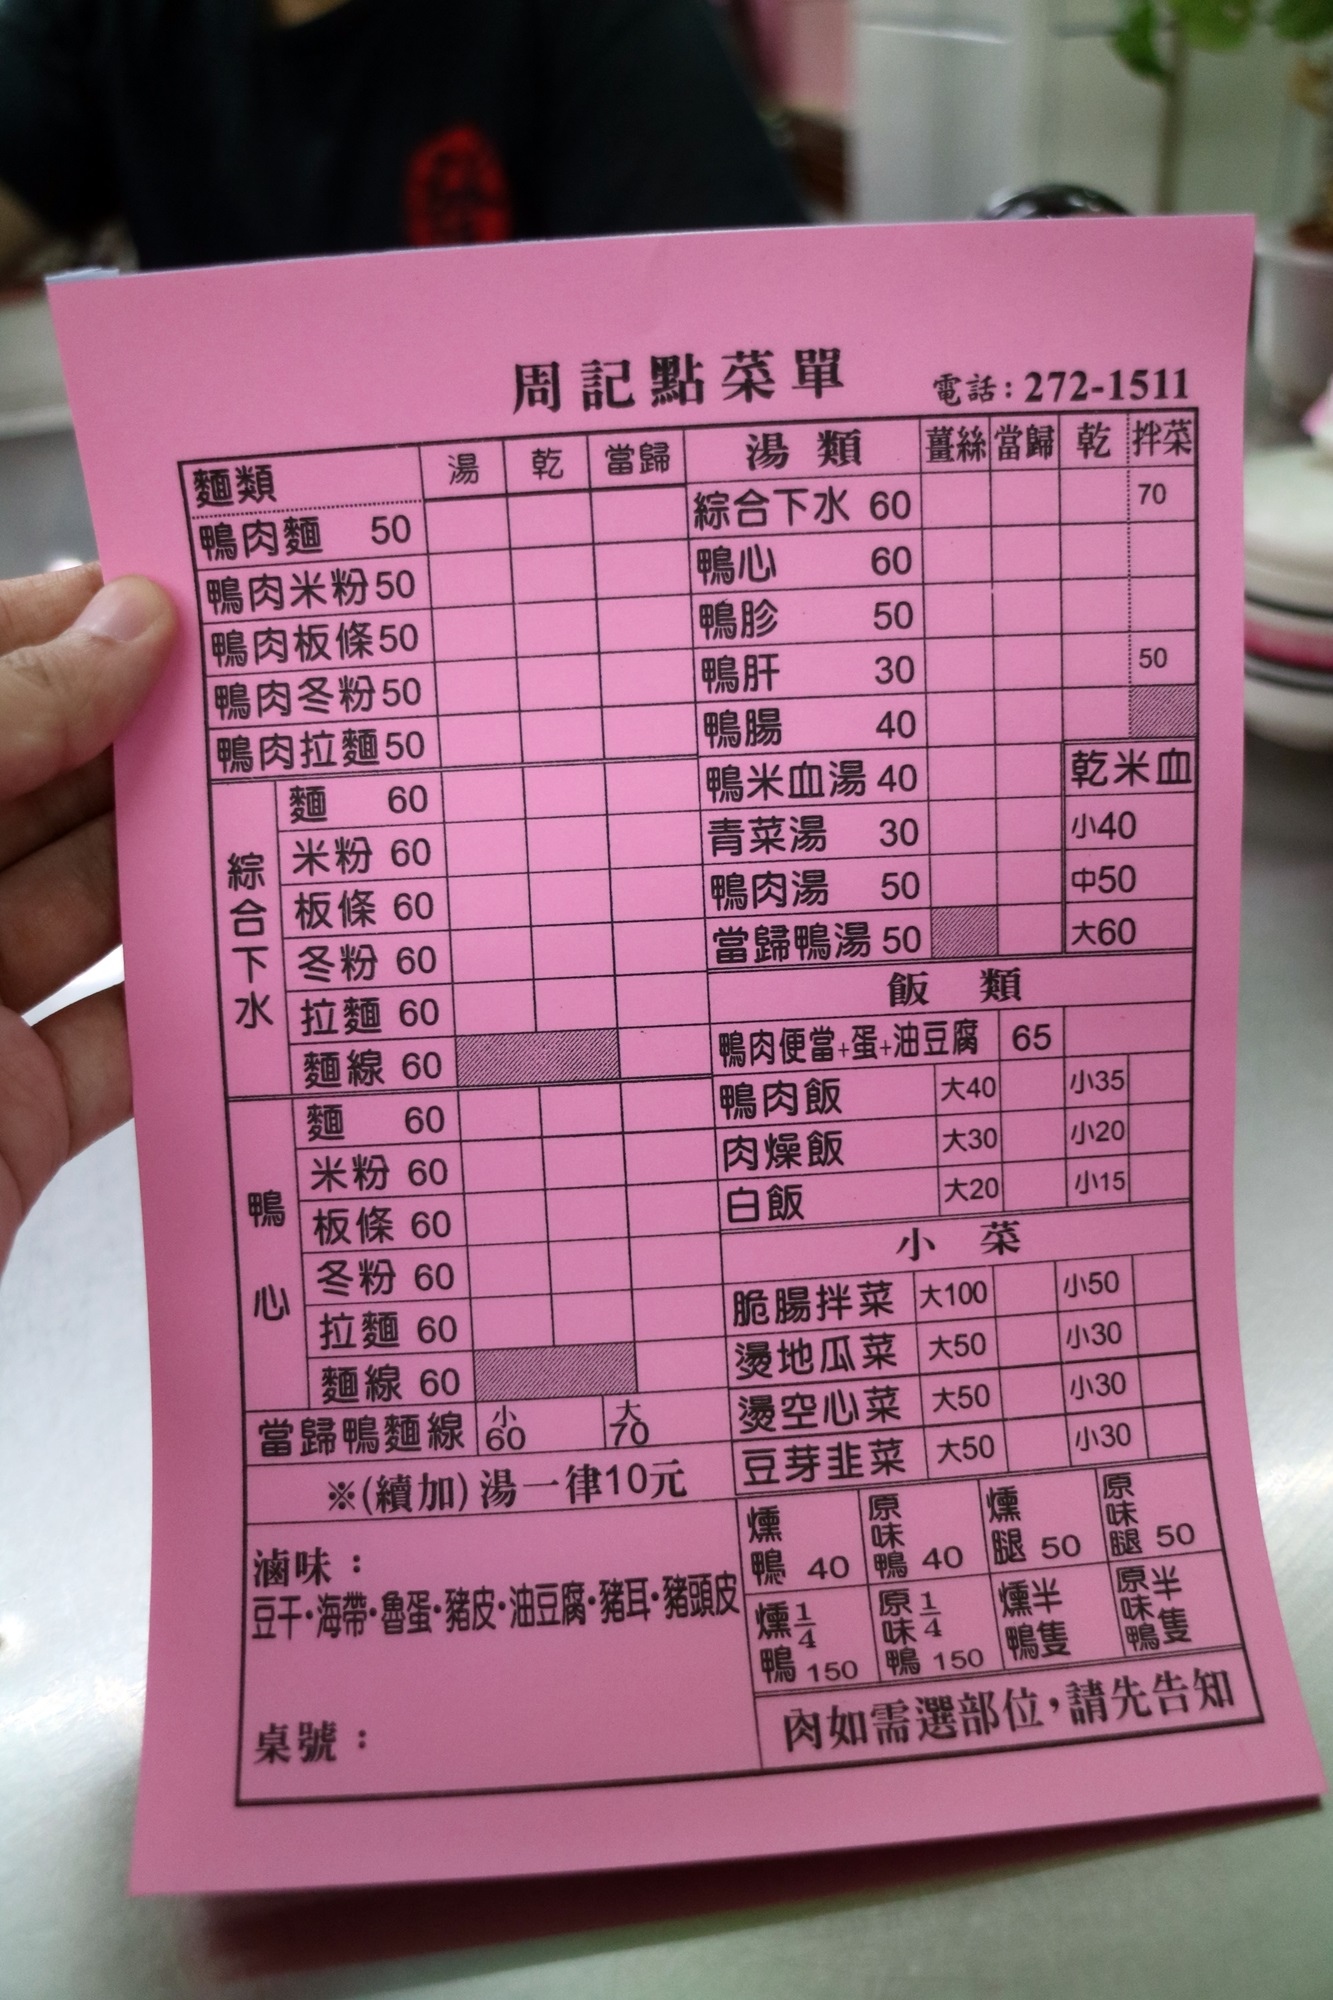 周記點菜單 電話：272-1511
麵類 湯 乾 當歸
鴨肉麵 50
鴨肉米粉 50
鴨肉板條 50
鴨肉冬粉 50
鴨肉拉麵 50
綜合下水
麵 60
米粉 60
板條 60
冬粉 60
拉麵 60
麵線 60
鴨心
麵 60
米粉 60
板條 60
冬粉 60
拉麵 60
麵線 60
當歸鴨麵線 小60 大70
※(續加) 湯一律10元
滷味：
豆干・海帶・魯蛋・豬皮・油豆腐・豬耳・豬頭皮
桌號：
湯類 薑絲 當歸 乾 拌菜
綜合下水 60 70
鴨心 60
鴨胗 50
鴨肝 30 50
鴨腸 40
鴨米血湯 40 乾米血
青菜湯 30 小40
鴨肉湯 50 中50
當歸鴨湯 50 大60
飯類
鴨肉便當+蛋+油豆腐 65
鴨肉飯 大40 小35
肉燥飯 大30 小20
白飯 大20 小15
小菜
脆腸拌菜 大100 小50
燙地瓜菜 大50 小30
燙空心菜 大50 小30
豆芽韭菜 大50 小30
燻鴨 40 原味鴨 40 燻腿 50 原味腿 50
燻1/4鴨 150 原味1/4鴨 150 燻半鴨隻 原半味鴨隻
肉如需選部位，請先告知